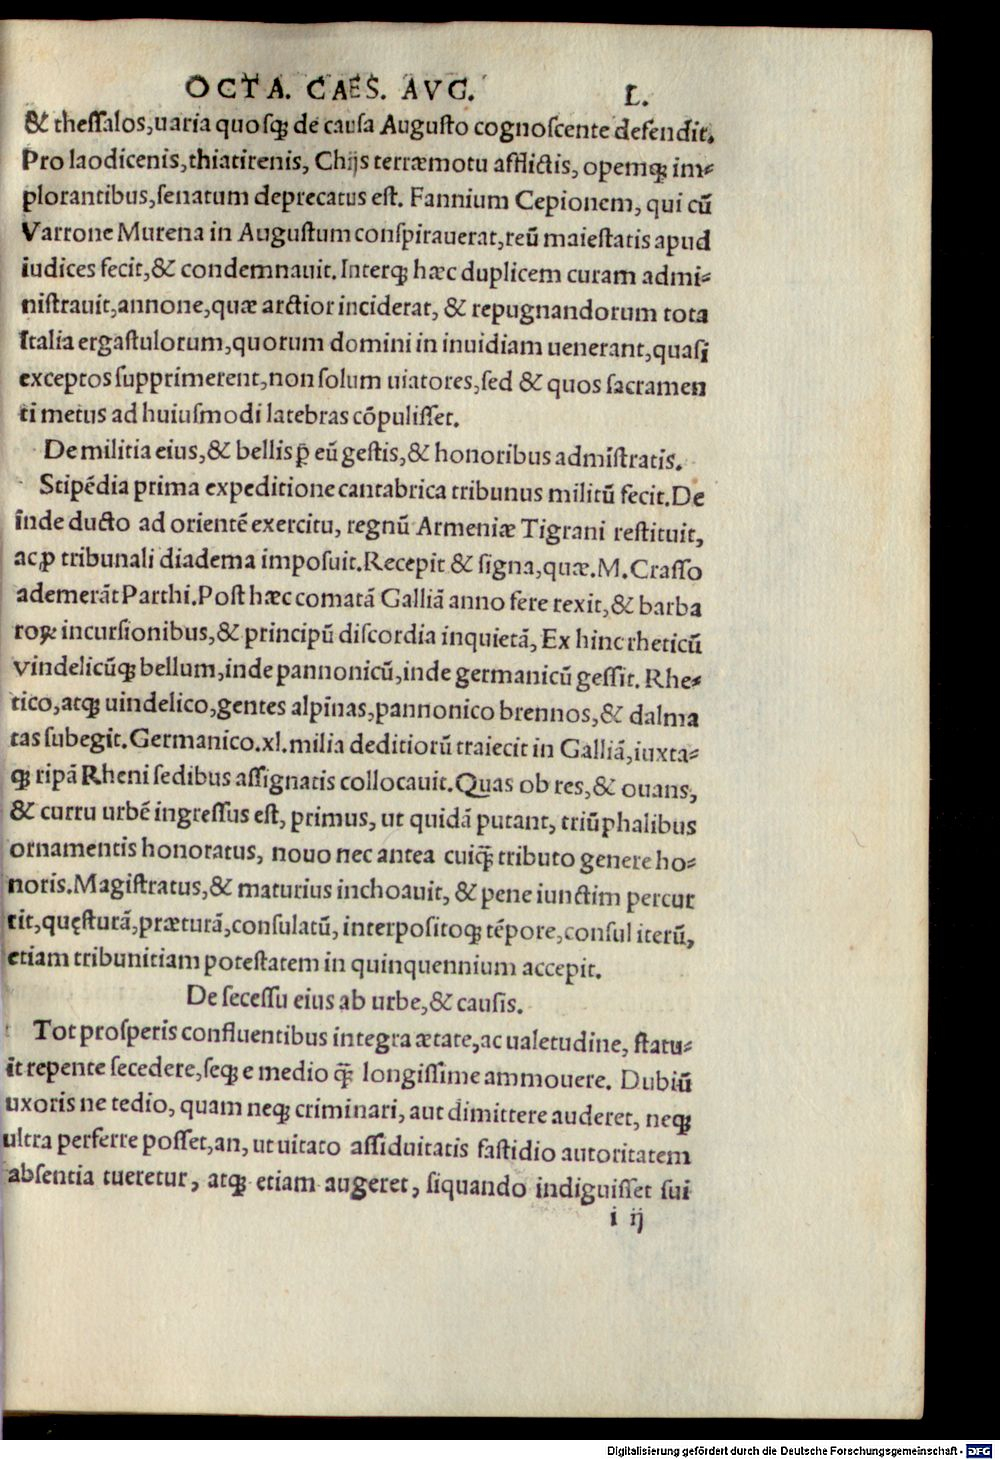 OCTA. CAES. AVG. L.
& theſſalos,uaria quoſq; de cauſa Auguſto cognoſcente defendit.
Pro laodicenis,thiatirenis, Chijs terræmotu afflictis, opemq; im-
plorantibus,ſenatum deprecatus eſt. Fannium Cepionem, qui cū
Varrone Murena in Auguſtum conſpirauerat,reū maieſtatis apud
iudices fecit,& condemnauit.Interq; hæc duplicem curam admi-
niſtrauit,annone,quæ arctior inciderat, & repugnandorum tota
Italia ergaſtulorum,quorum domini in inuidiam uenerant,quaſi
exceptos ſupprimerent,non ſolum uiatores,ſed & quos ſacramen
ti metus ad huiuſmodi latebras cōpuliſſet.
De militia eius,& bellis p̄ eū geſtis,& honoribus admiſtratis.
Stipēdia prima expeditione cantabrica tribunus militū fecit.De
inde ducto ad orientē exercitu, regnū Armeniæ Tigrani reſtituit,
ac ꝓ tribunali diadema impoſuit.Recepit & ſigna,quæ.M.Craſſo
ademerāt Parthi.Poſt hæc comatā Galliā anno fere rexit,& barba
roꝝ incurſionibus,& principū diſcordia inquietā, Ex hinc rheticū
vindelicūq; bellum,inde pannonicū,inde germanicū geſſit. Rhe-
tico,atq; uindelico,gentes alpinas,pannonico brennos,& dalma
tas ſubegit.Germanico.xl.milia deditiorū traiecit in Galliā,iuxta-
q; ripā Rheni ſedibus aſſignatis collocauit.Quas ob res,& ouans,
& curru urbē ingreſſus eſt, primus, ut quidā putant, triūphalibus
ornamentis honoratus, nouo nec antea cuiq̄ tributo genere ho-
noris.Magiſtratus,& maturius inchoauit, & pene iunctim percur
rit,quęſturā,præturā,conſulatū, interpoſitoq; tēpore,conſul iterū,
etiam tribunitiam poteſtatem in quinquennium accepit.
De ſeceſſu eius ab urbe,& cauſis.
Tot proſperis confluentibus integra ætate,ac ualetudine, ſtatu-
it repente ſecedere,ſeq; e medio q̄ longiſſime ammouere. Dubiū
uxoris ne tedio, quam neq; criminari, aut dimittere auderet, neq;
ultra perferre poſſet,an, ut uitato aſſiduitatis faſtidio autoritatem
abſentia tueretur, atq; etiam augeret, ſiquando indiguiſſet ſui
i ij
Digitalisierung gefördert durch die Deutsche Forschungsgemeinschaft - DFG